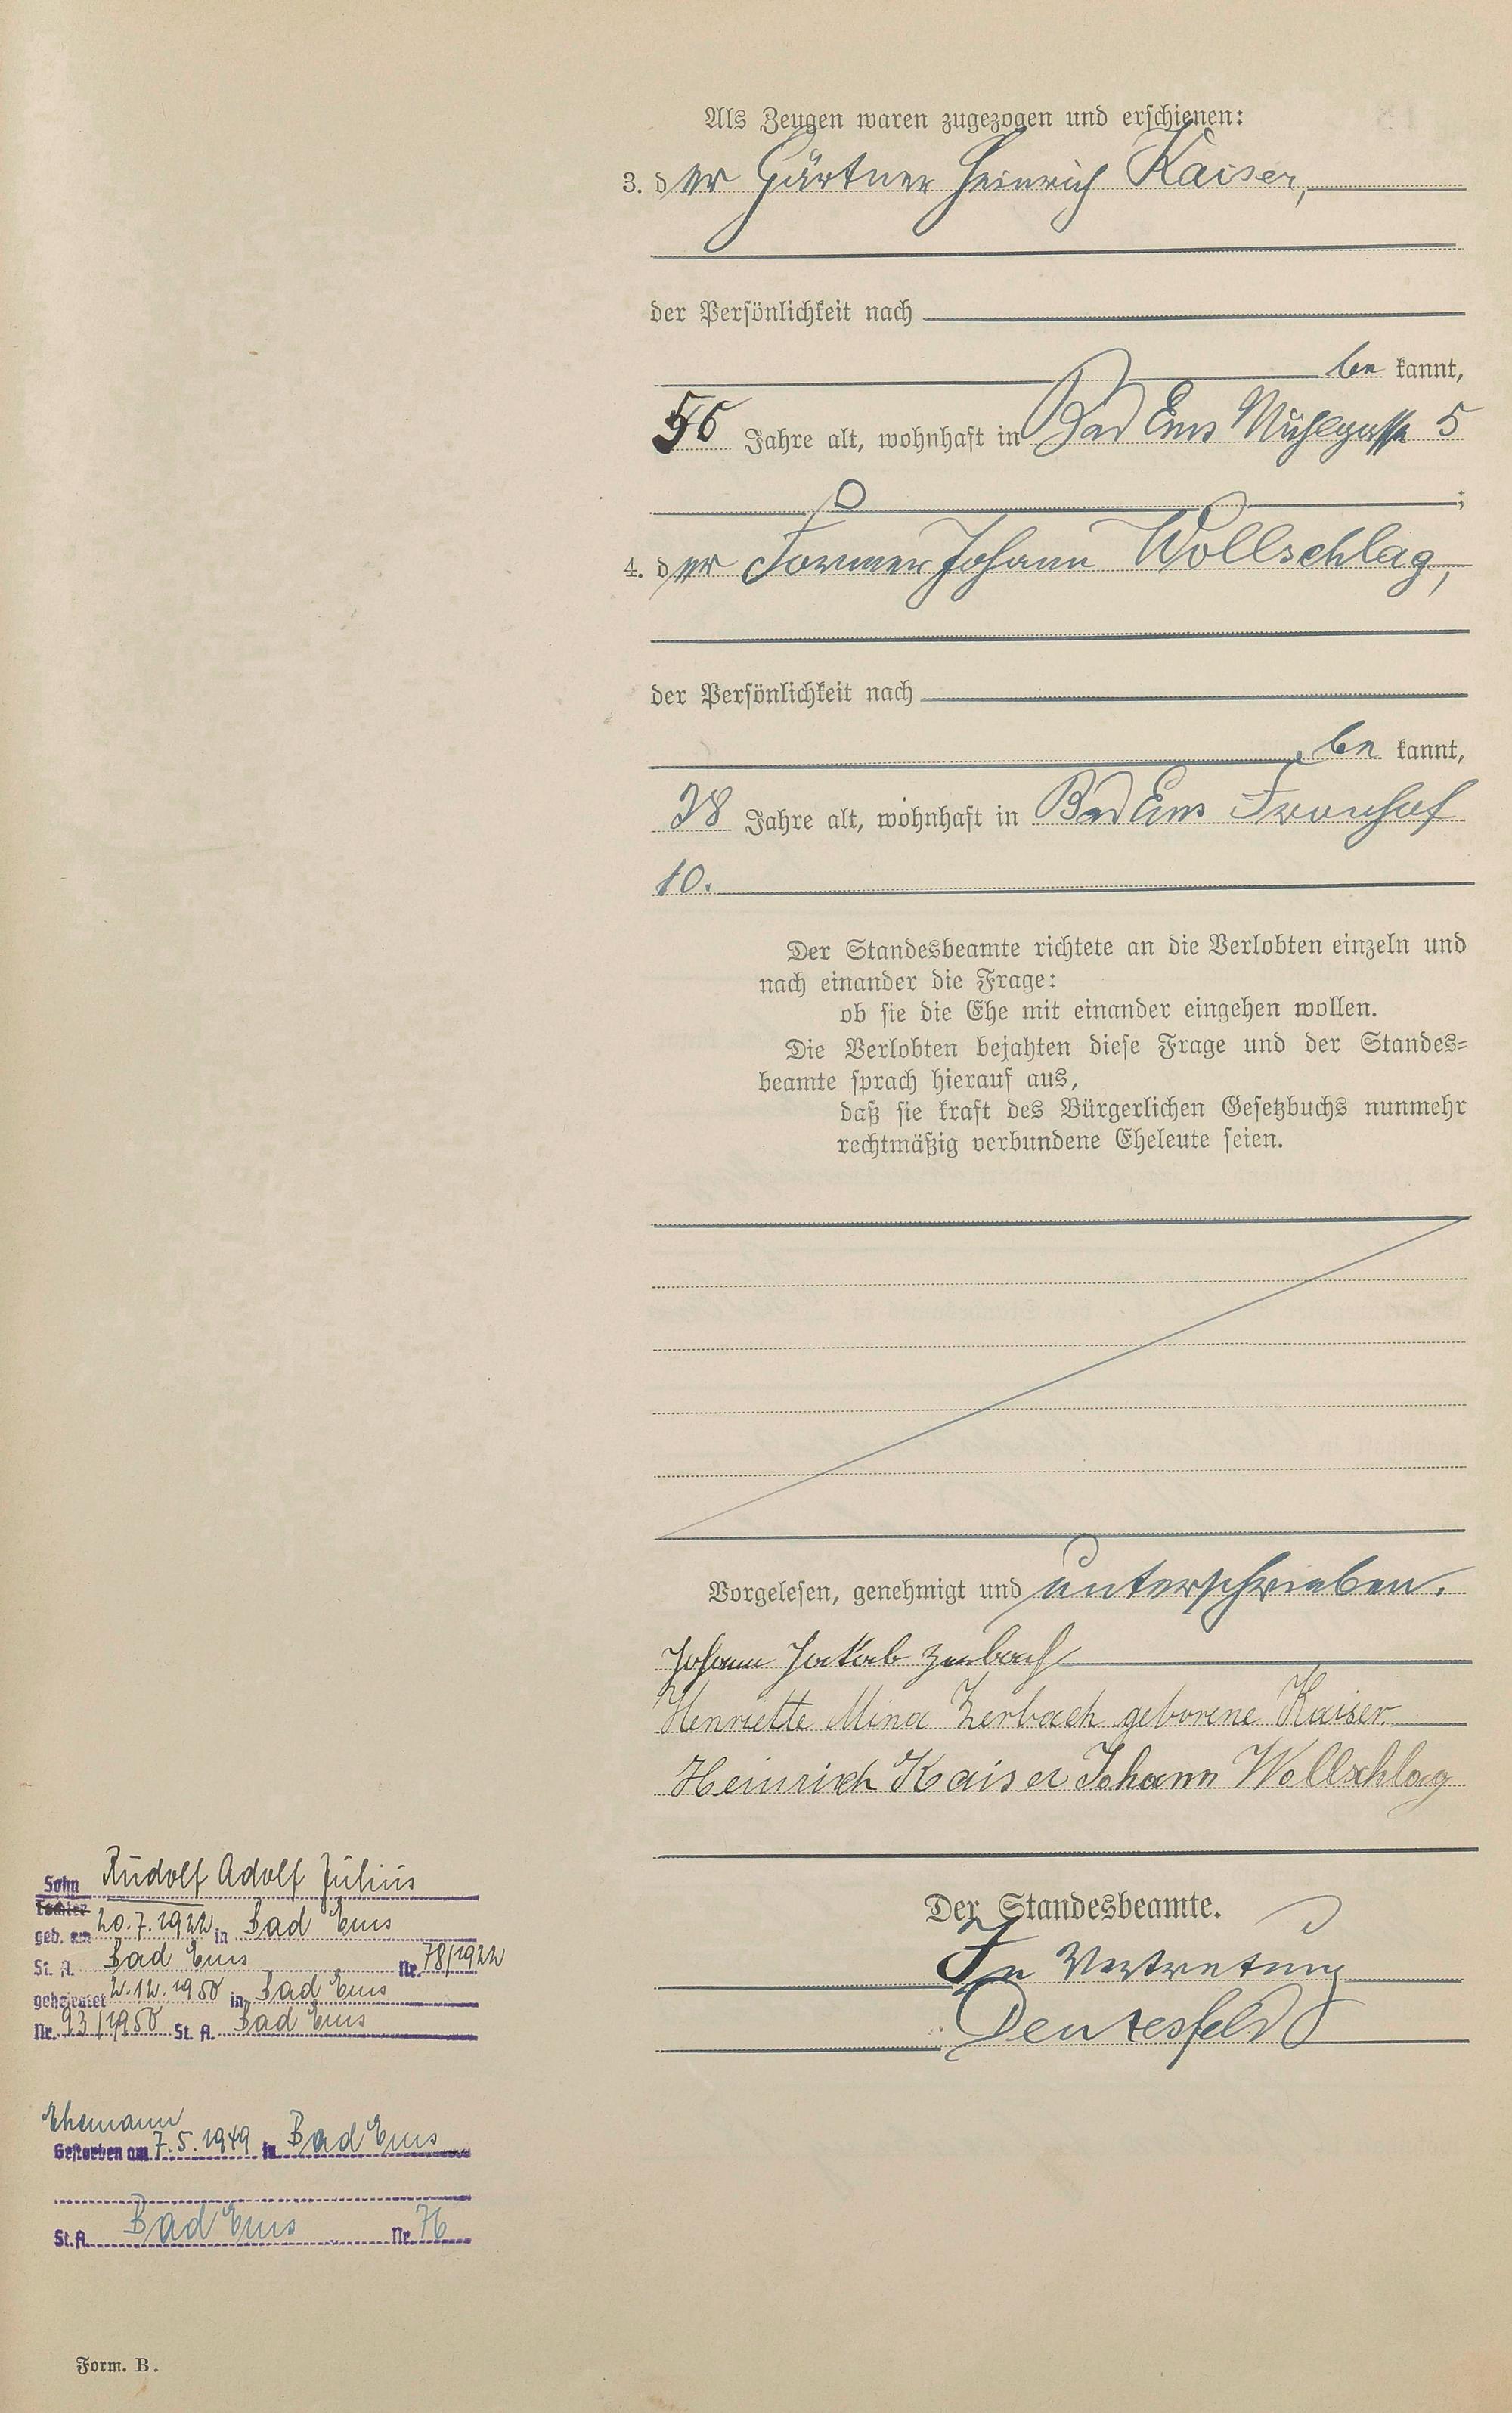 Als Zeugen waren zugezogen und erschienen:
3. der Gärtner Heinrich Kaiser,
der Persönlichkeit nach
bekannt,
56 Jahre alt, wohnhaft in Bad Ems Mühlgasse 5
;
4. der Former Johann Wollschlag,
der Persönlichkeit nach
bekannt,
28 Jahre alt, wohnhaft in Bad Ems Fronhof
10.
Der Standesbeamte richtete an die Verlobten einzeln und
nach einander die Frage:
ob sie die Ehe mit einander eingehen wollen.
Die Verlobten bejahten diese Frage und der Standes=
beamte sprach hierauf aus,
daß sie kraft des Bürgerlichen Gesetzbuchs nunmehr
rechtmäßig verbundene Eheleute seien.
Vorgelesen, genehmigt und unterschrieben.
Johann Jakob Zerbach
Henriette Mina Zerbach geborene Kaiser.
Heinrich Kaiser Johann Wollschlag
Der Standesbeamte.
In Vertretung
Sohn Rudolf Adolf Julius
Tochter
geb. am 20.7.1922 in Bad Ems
St. A. Bad Ems Nr. 78/1922
geheiratet 2.12.1950 in Bad Ems
Nr. 93/1950 St. A. Bad Ems
Ehemann
Gestorben am 7.5.1949 in Bad Ems
St.A. Bad Ems Nr. 76
Form. B.